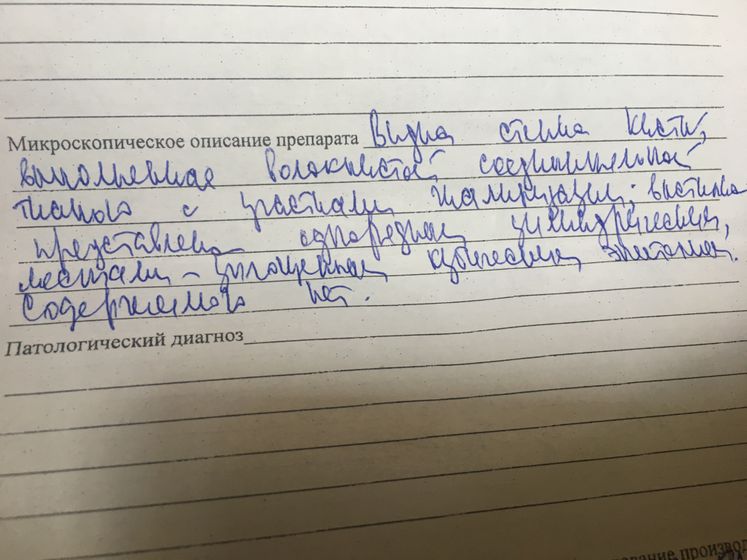 Микроскопическое описание препарата Видна стенка кисты,
выполненная волокнистой соединительной
тканью с участками гиалинизации; выстилка
представлена однорядным цилиндрическим,
местами – уплощенным кубическим эпителием.
Содержимого нет.
Патологический диагноз